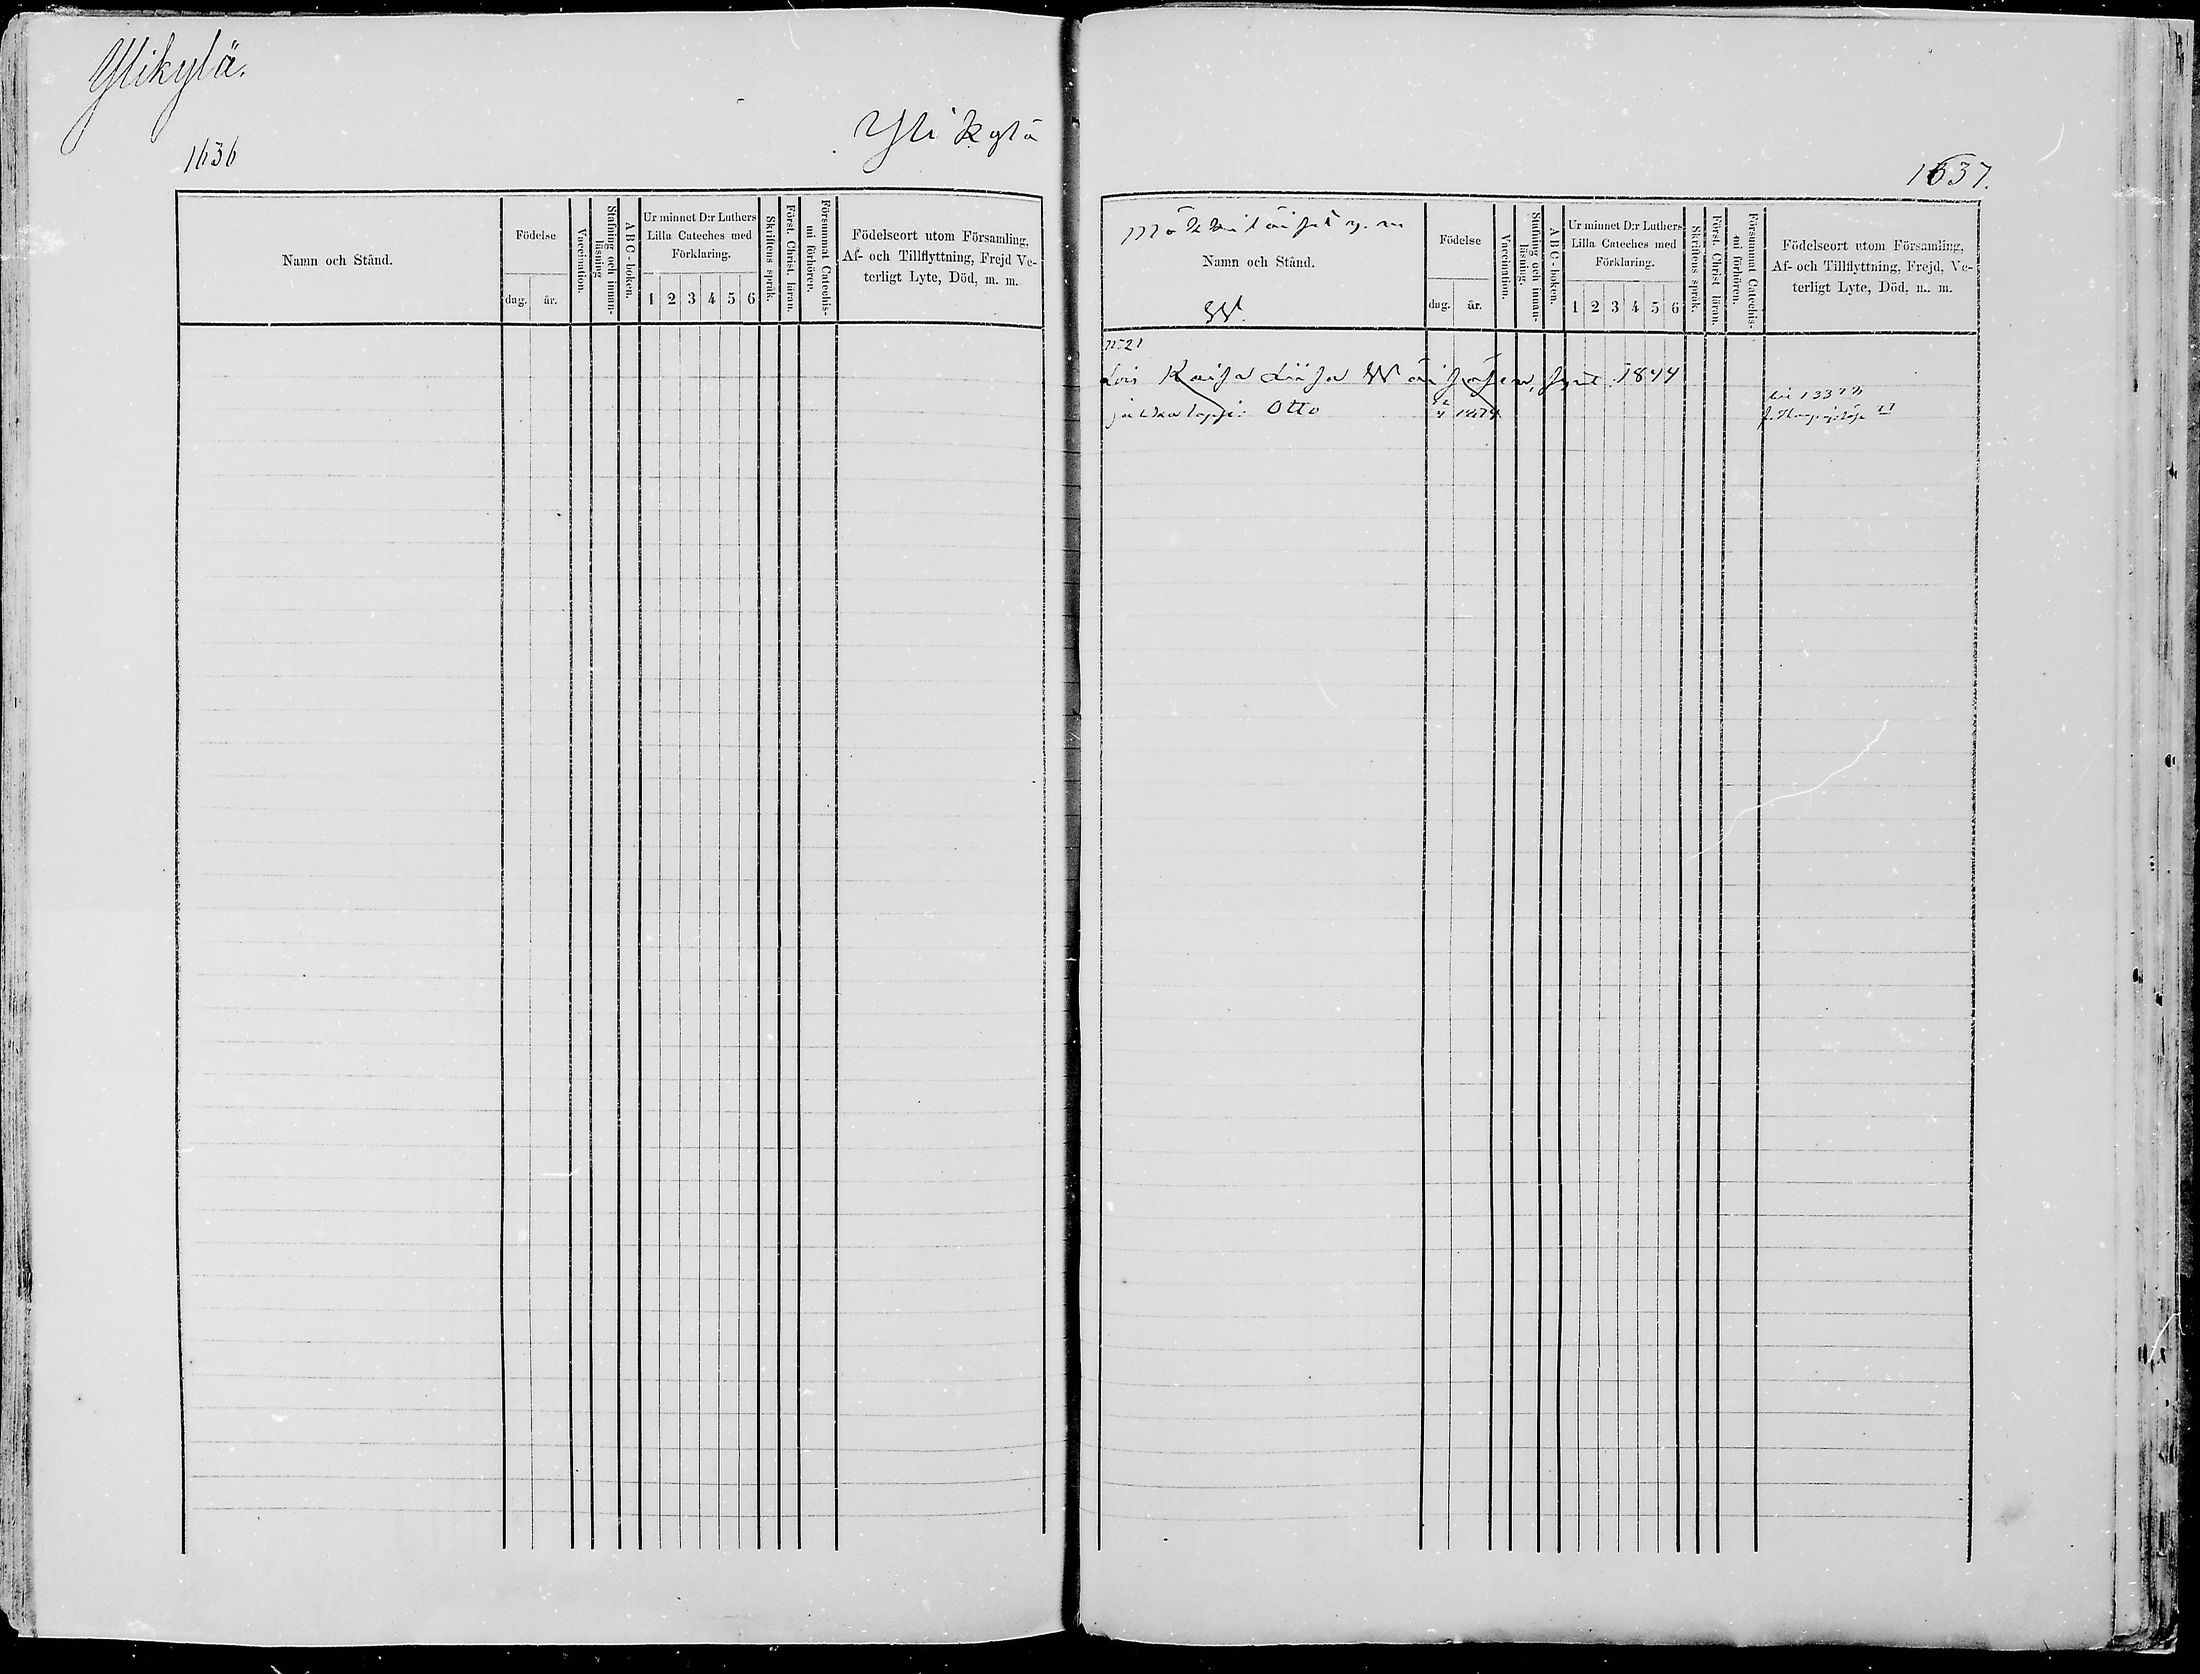 Ylikylä.
Ylikylä
1636
Namn och Stånd.
Födelse
dag. år.
Vaccination.
Stafning och innan-
läsning
A B C - boken.
Ur minnet D:r Luthers
Lilla Cateches med
Förklaring.
1 2 3 4 5 6
Skriftens språk.
Först. Christ. läran.
Försummat Catechis-
mi förhören.
Födelseort utom Församling,
Af- och Tillflyttning, Frejd Ve-
terligt Lyte, Död, m. m.
1637.
Namn och Stånd.
W.
Födelse
dag. år.
Vaccination.
Stafning och innan-
läsning.
A B C - boken.
Ur minnet D:r Luthers
Lilla Cateches med
Förklaring.
1 2 3 4 5 6
Skriftens språk.
Först. Christ läran.
Försummat Catechis-
mi förhören.
Födelseort utom Församling,
Af- och Tillflyttning, Frejd, Ve-
terligt Lyte, Död, m. m.
N:o 21
Lois Kaisa Liisa Wäisäsen, synt. 1844
Otto 1874